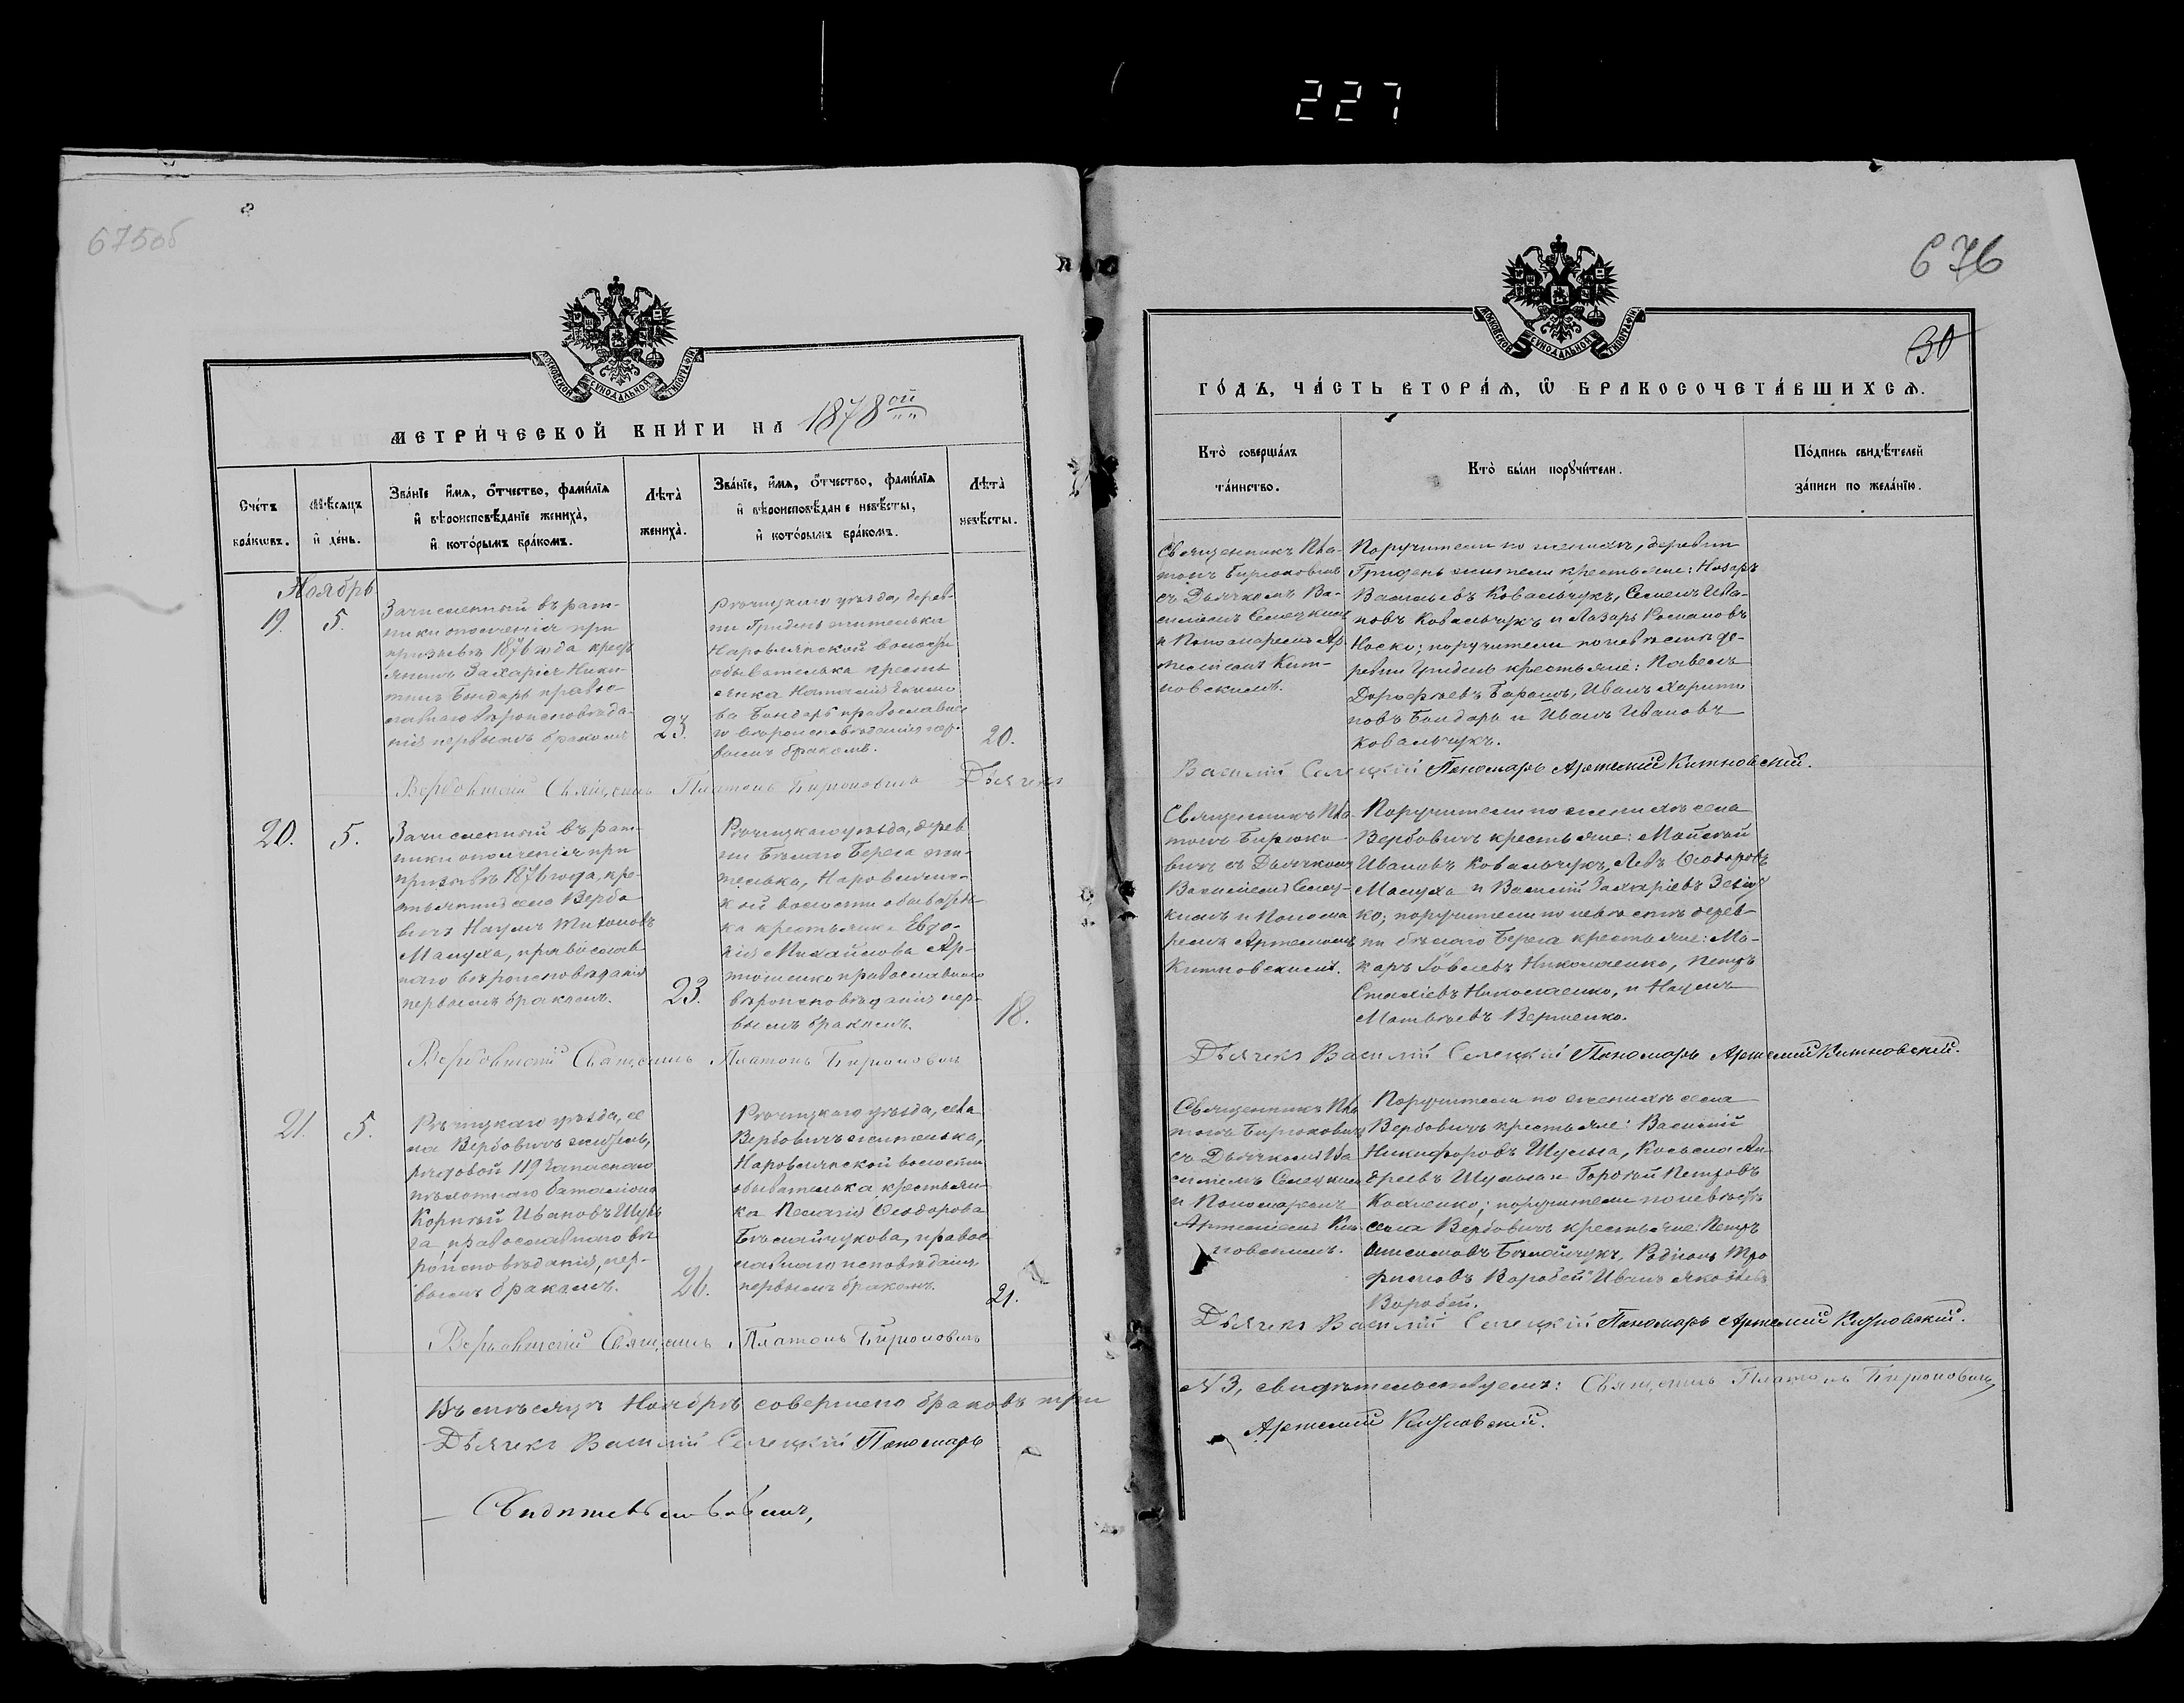 227
675об
676
30
МОСКОВСКОЙ СѴНОДАЛЬНОЙ ТИПОГРАФІИ
МЕТРИ́ЧЕСКОЙ КНИ́ГИ НА 1878ой
Сче́тъ бра́кωвъ.
Мѣ́сяцъ и҆ де́нь.
Зва́нїе и҆́мѧ, ѻ҆́тчество, фами́лїѧ
и҆ вѣроисповѣ́данїе жениха̀,
и҆ кото́рымъ бра́комъ.
Лѣта̀ жениха̀.
Зва́нїе, и҆́мѧ, ѻ҆́тчество, фами́лїѧ
и҆ вѣроисповѣ́дан е невѣ́сты,
и҆ кото́рымъ бра́комъ.
Лѣта̀ невѣ́сты.
Ноябрь
19.
5.
Зачисленный въ рат-
ники ополченія при
призывѣ 1876 года крест
янинъ Захарія Ники-
тинъ Бондарь правос
лавнаго вѣроисповѣда-
нія первымъ бракомъ
23.
Рѣчицкаго уѣзда, дерев-
ни Гридень жителька
Наровлянской волости
обывателька кресть
янка Наталія
ва Бондарь православна
го вѣроисповѣданія пер-
вымъ бракомъ.
20.
Вербовичскій Священникъ Платонъ Бирюковичъ Дьячекъ
20.
5.
Зачисленный въ рат-
ники ополченія при
призывѣ 1876 года, кре-
стьянинъ села Вербо
вичъ Наумъ Тихоновъ
Мацуха, православ
наго вѣроисповѣданія
первымъ бракомъ.
23.
Рѣчицкаго уѣзда, дерев
ни Бѣлаго Берега жи-
телька, Наровлянс-
кой волости обыватель-
ка крестьянка Евдо-
кія Михайлова Ар-
тюшенко православнаго
вѣроисповѣданія пер-
вымъ бракомъ.
18.
Вербовичскій Священникъ Платонъ Бирюковичъ
21.
5.
Рѣчицкаго уѣзда, се
ла Вербовичъ житель,
рядовой 119 Запаснаго
пѣхотнаго баталіона
Корнѣй Ивановъ Шуль
га, православнаго вѣ
роисповѣданія, пер-
вымъ бракомъ.
26.
Рѣчицкаго уѣзда, села
Вербовичъ жителька,
Наровлянской волости
обывателька крестьян-
ка Пелагія Ѳеодорова
Бѣлайчукова, правос
лавнаго исповѣданія
первымъ бракомъ.
21.
Вербовичскій Священникъ Платонъ Бирюковичъ
Въ мѣсяцѣ Ноябрѣ совершено браковъ три
Дьячекъ Василій Селецкій Пономарь
ГО́ДЪ, ЧА́СТЬ ВТОРА́Ѧ, Ѡ҆ БРАКОСОЧЕТА́ВШИХСѦ.
Кто̀ соверша́лъ та́инство.
Кто̀ бы́ли порꙋчи́тели.
По́дпись свидѣ́телей за́писи по жела́нїю.
Священникъ Пла-
тонъ Бирюковичъ
съ Дьячкомъ Ва-
силіемъ Селецкимъ
и Пономаремъ Ар
теміемъ Кит-
новскимъ.
Поручители по женихѣ, деревни
Гридень жители крестьяне: Назаръ
Васильевъ Ковальчукъ, Семенъ Ива-
новъ Ковальчукъ и Лазарь Романовъ
Носко; поручители по невѣстѣ де-
ревни Гридень крестьяне: Павелъ
Дорофѣевъ Барашъ, Иванъ Харито
новъ Бондарь и Иванъ Ивановъ
Ковальчукъ.
Василій Селецкій Пономарь Артемій Китновскій.
Священникъ Пла
тонъ Бирюко-
вичъ съ Дьячкомъ
Василіемъ Селец-
кимъ и Понома
ремъ Артеміемъ
Китновскимъ.
Поручители по женихѣ села
Вербовичъ крестьяне: Мойсѣй
Ивановъ Ковальчукъ, Левъ Ѳеодоровъ
Мацуха и Василій Захаріевъ
ко; поручители по невѣстѣ дерев-
ни Бѣлаго Берега крестьяне: Ма-
каръ Іовлевъ Николаенко, Петръ
Николаенко, и Наумъ
Матвѣевъ
Дьячекъ Василій Селецкій Пономарь Артемій Китновскій.
Священникъ Пла
тонъ Бирюковичъ
съ Дьячкомъ Ва
силіемъ Селецкимъ
и Пономаремъ
Артеміемъ Кит-
новскимъ.
Поручители по женихѣ села
Вербовичъ крестьяне: Василій
Никифоровъ Шульга, Косьма Ан-
дреевъ Шульга и Гордѣй Петровъ
поручители по невѣстѣ
села Вербовичъ крестьяне: Петръ
Бѣлайчукъ, Родіонъ Тро
фимовъ Воробей Иванъ Яковлевъ
Воробей.
Дьячекъ Василій Селецкій Пономарь Артемій Китновскій.
№ 3, свидѣтельствуемъ: Священникъ Платонъ Бирюковичъ,
Артемій Китновскій.